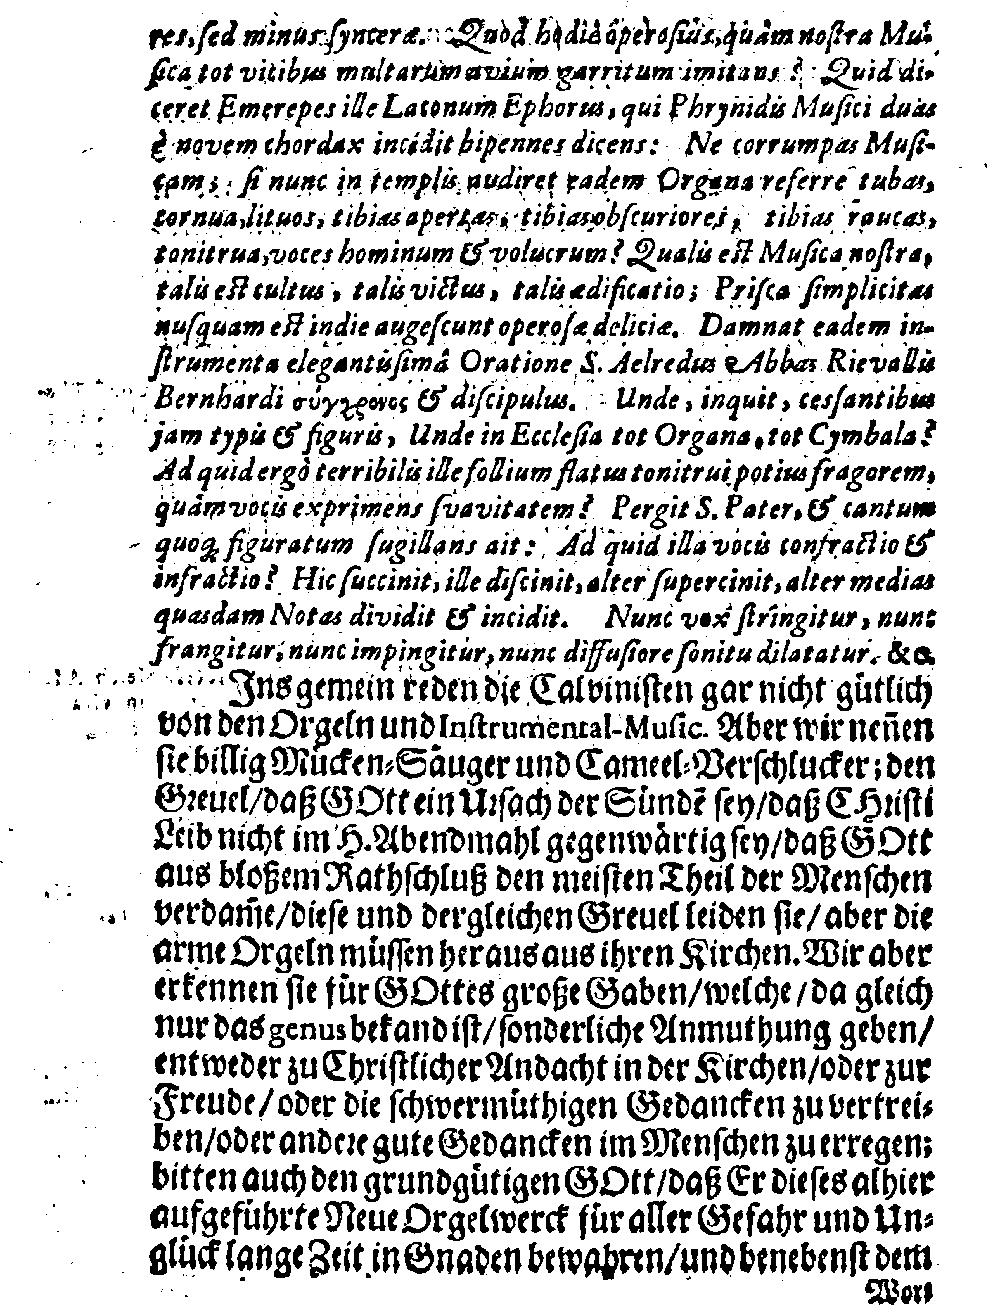 res, sed minus synceræ. Quòd hodiè operosiùs, quàm nostra Mu-
sica tot vitibus multarum avium garritum imitans? Quid di-
ceret Emerepes ille Laconum Ephorus, qui Phrynidis Musici duas
è novem chordax incidit bipennes dicens: Ne corrumpas Musi-
cam; si nunc in templis audiret eadem Organa referre tubas,
cornua, lituos, tibias apertas, tibias obscuriores, tibias raucas,
tonitrua, voces hominum & volucrum? Qualis est Musica nostra,
talis est cultus, talis victus, talis ædificatio; Prisca simplicitas
nusquam est indie augescunt operosæ deliciæ. Damnat eadem in-
strumenta elegantissimâ Oratione S. Aelredus Abbas Rievallis
Bernhardi σύγχρονος & discipulus. Unde, inquit, cessantibus
jam typis & figuris, Unde in Ecclesia tot Organa, tot Cymbala?
Ad quid ergò terribilis ille follium flatus tonitrui potius fragorem,
quàm vocis exprimens svavitatem? Pergit S. Pater, & cantum
quoq; figuratum sugillans ait: Ad quid illa vocis confractio &
infractio? Hic succinit, ille discinit, alter supercinit, alter medias
quasdam Notas dividit & incidit. Nunc vox stringitur, nunc
frangitur, nunc impingitur, nunc diffusiore sonitu dilatatur. &c.
Ins gemein reden die Calvinisten gar nicht gütlich
von den Orgeln und Instrumental-Music. Aber wir neñen
sie billig Mücken-Säuger und Cameel-Verschlucker; den
Greuel/ daß GOtt ein Ursach der Sündẽ sey/ daß CHristi
Leib nicht im H. Abendmahl gegenwärtig sey/ daß GOtt
aus bloßem Rathschluß den meisten Theil der Menschen
verdam̃e/ diese und dergleichen Greuel leiden sie/ aber die
arme Orgeln müssen heraus aus ihren Kirchen. Wir aber
erkennen sie für GOttes große Gaben/ welche/ da gleich
nur das genus bekand ist/ sonderliche Anmuthung geben/
entweder zu Christlicher Andacht in der Kirchen/ oder zur
Freude/ oder die schwermüthigen Gedancken zu vertrei-
ben/ oder andere gute Gedancken im Menschen zu erregen;
bitten auch den grundgütigen GOtt/ daß Er dieses alhier
aufgeführte Neue Orgelwerck für aller Gefahr und Un-
glück lange Zeit in Gnaden bewahren/ und benebenst dem
Wort